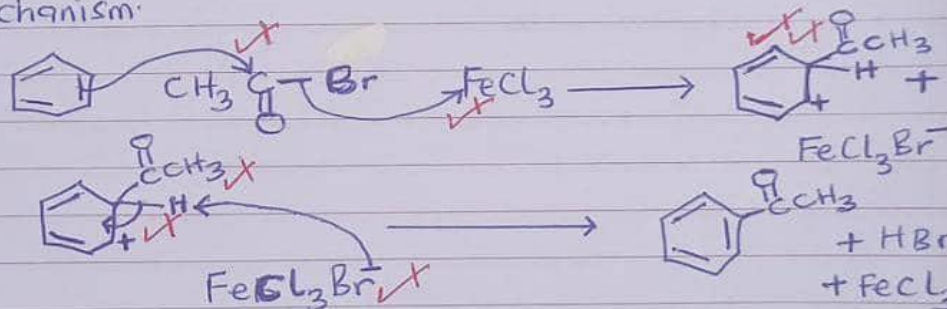 chanism.
CH3 C Br FeCl3 O CCH3 H +
O
+
FeCl3Br-
O
CCH3
H
+
FeCl3Br-
O
CCH3
+ HBr
+ FeCl3